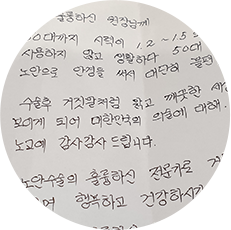 훌륭하신 원장님께
0대까지 시력이 1.2 ~ 1.5
사용하지 않고 생활하다 50대
노안으로 안경을 써서 대단히 불편
수술후 거짓말처럼 맑고 깨끗한
보이게 되어 대한민국의 의술에 대해
노고에 감사감사 드립니다.
노안수술의 훌륭하신 전문가로
행복하고 건강하시